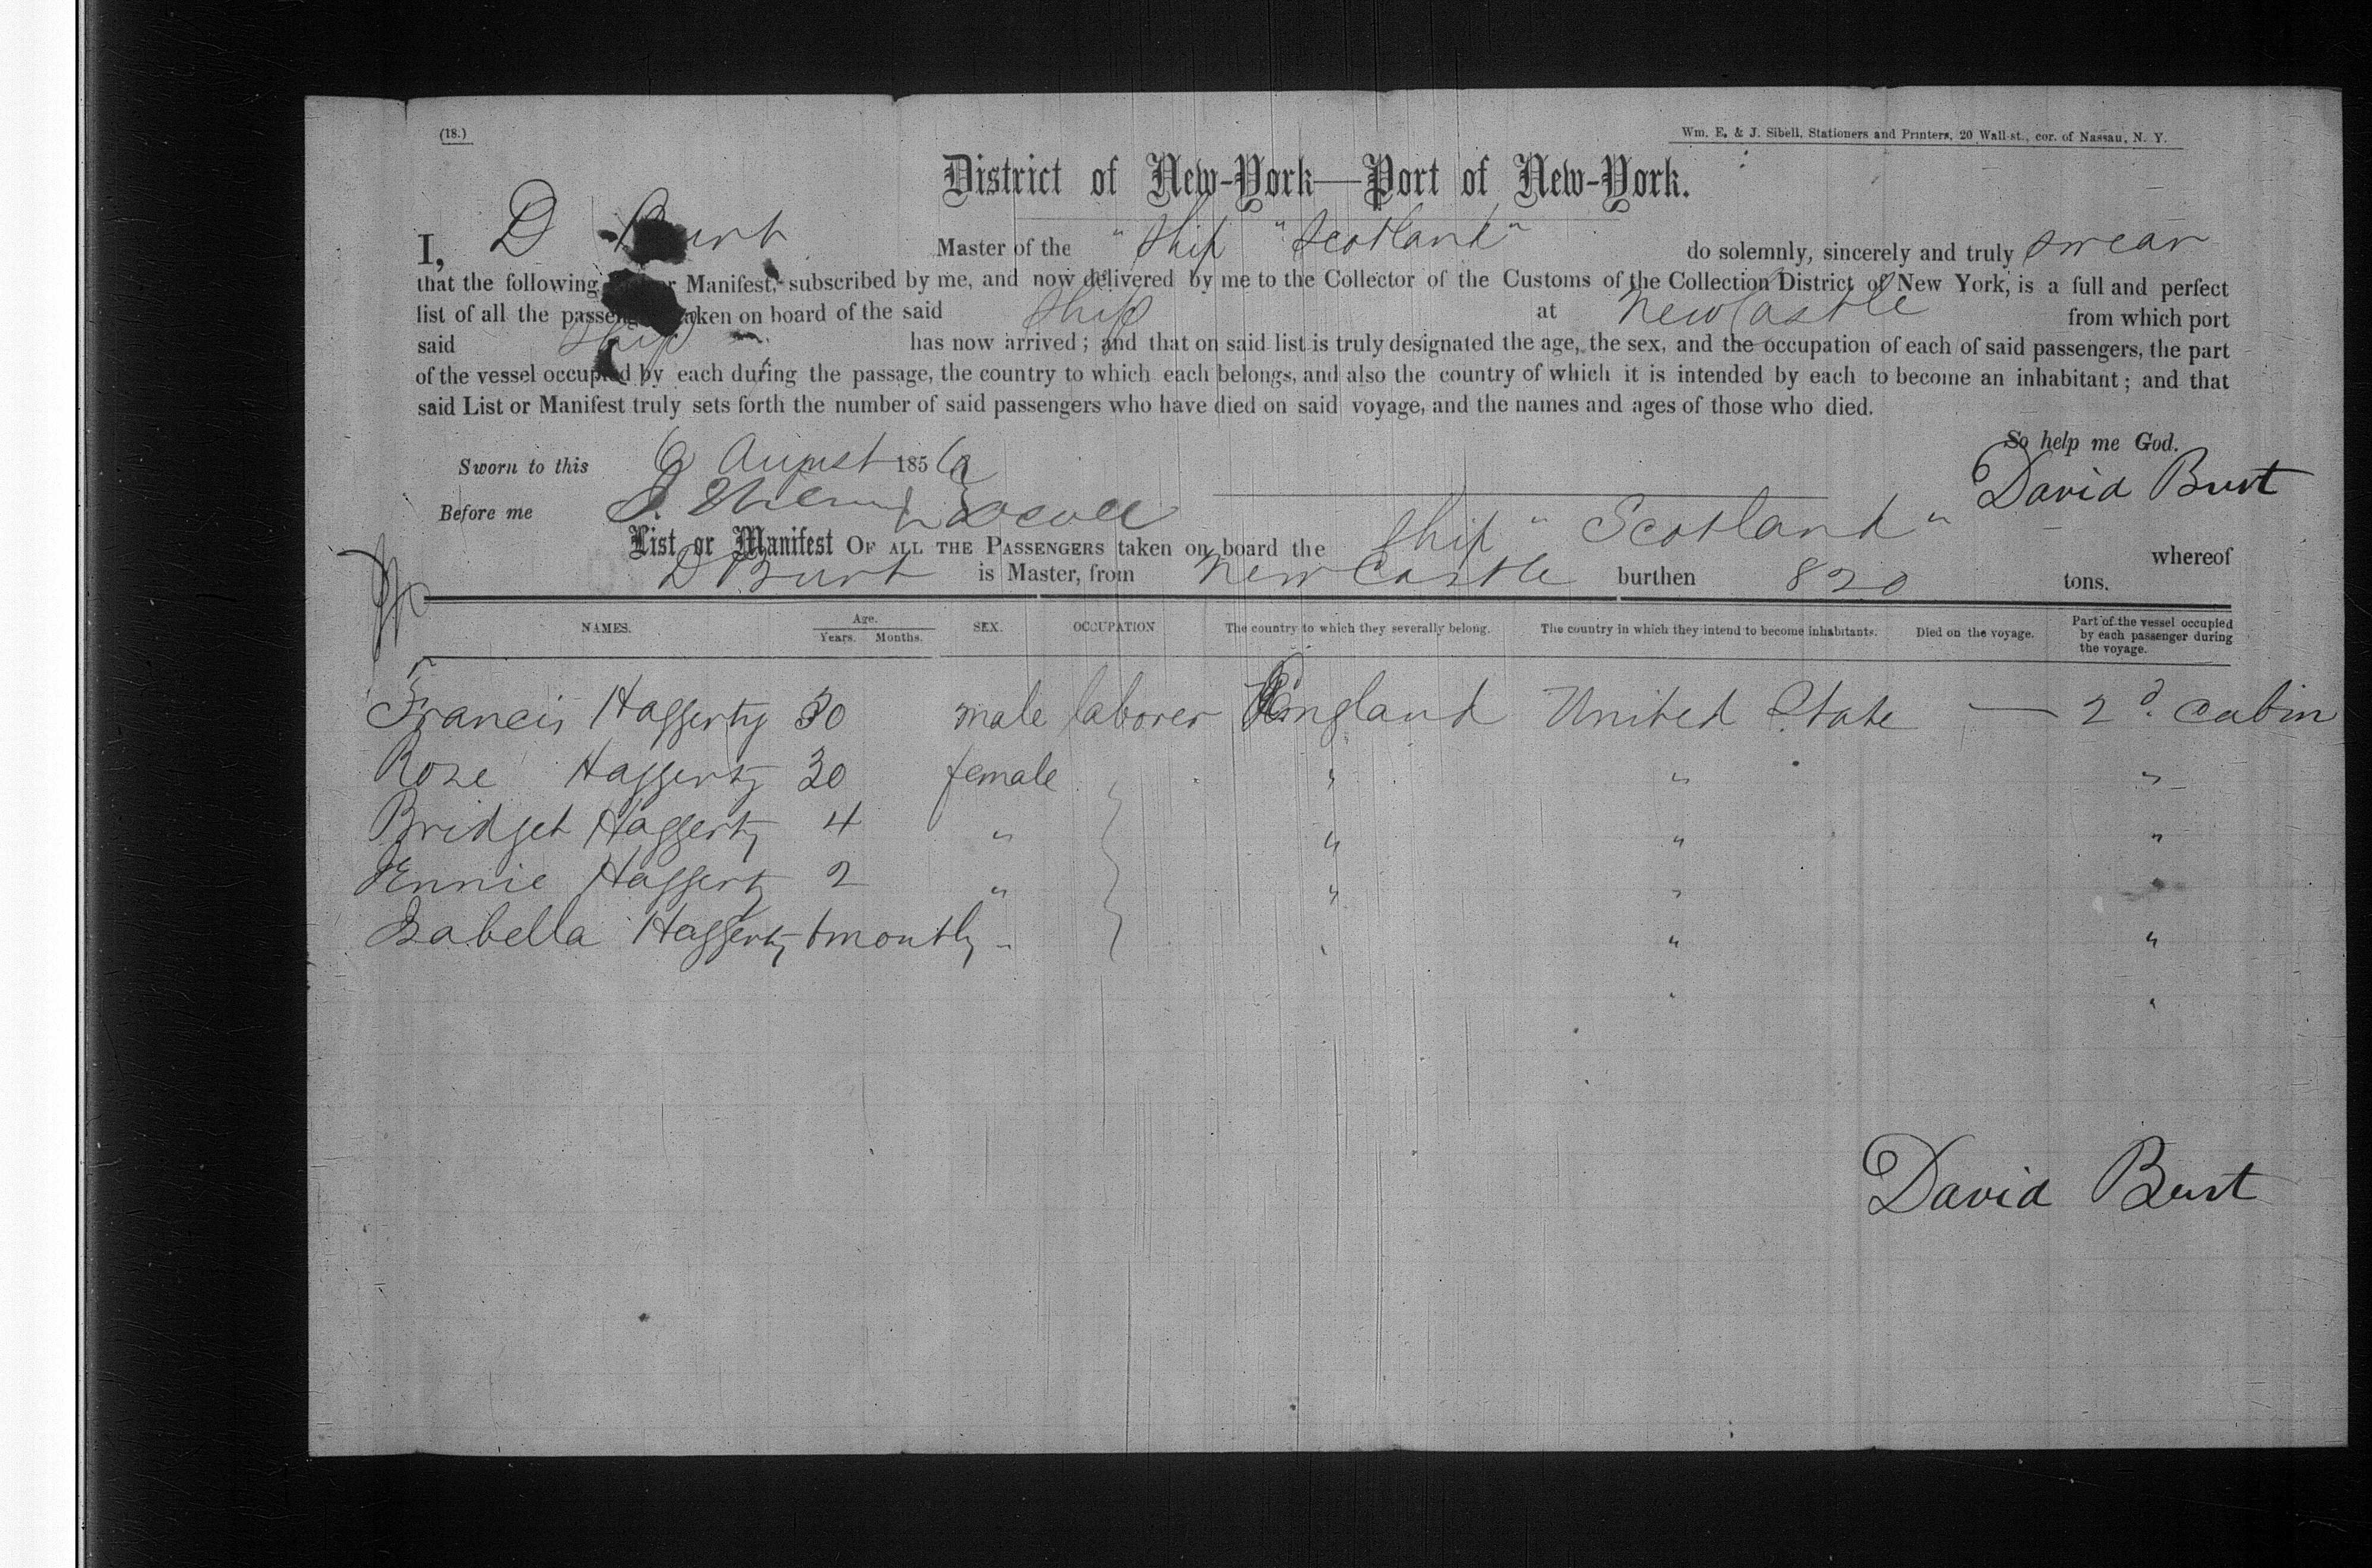 (18.)
Wm. E. & J. Sibell, Stationers and Printers, 20 Wall-st., cor. of Nassau, N. Y.
District of New-York—Port of New-York.
I, D Burt Master of the "Ship "Scotland" do solemnly, sincerely and truly swear
that the following or Manifest, subscribed by me, and now delivered by me to the Collector of the Customs of the Collection District of New York, is a full and perfect
list of all the passengers taken on board of the said Ship at New Castle from which port
said Ship has now arrived; and that on said list is truly designated the age, the sex, and the occupation of each of said passengers, the part
of the vessel occupied by each during the passage, the country to which each belongs, and also the country of which it is intended by each to become an inhabitant; and that
said List or Manifest truly sets forth the number of said passengers who have died on said voyage, and the names and ages of those who died.
So help me God.
Sworn to this 6 August 1856
David Burt
Before me
List or Manifest OF ALL THE PASSENGERS taken on board the Ship "Scotland" whereof
D Burt is Master, from New Castle burthen 820 tons.
NAMES. Age. Years. Months. SEX. OCCUPATION The country to which they severally belong. The country in which they intend to become inhabitants. Died on the voyage. Part of the vessel occupied by each passenger during the voyage.
Francis Haggerty 30 male laborer England United State — 2d. Cabin
Rose Haggerty 30 female " " "
Bridget Haggerty 4 " " " "
Ennie Haggerty 2 " " " "
Isabella Haggerty months " " "
" "
David Burt